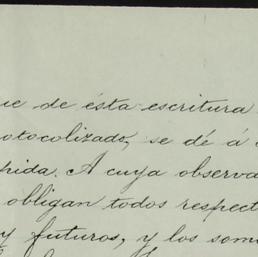 ue de ésta escritura
otocolizado, se dé á
pida. A cuya observa
obligan todos respect
y futuros, y los som